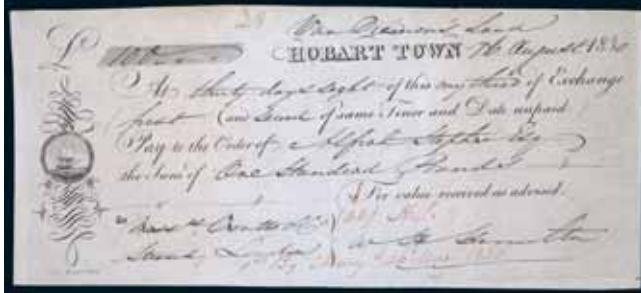 28
Van Diemen's Land
£ 100 HOBART TOWN 7th August 1830
At thirty days sight of this my third of Exchange
first (and Second of same Tenor and Date unpaid
Pay to the Order of Alfred Stephen Esq
the Sum of One Hundred Pounds
For value received as advised.
To Mess.rs Coutts & Co
Strand, London